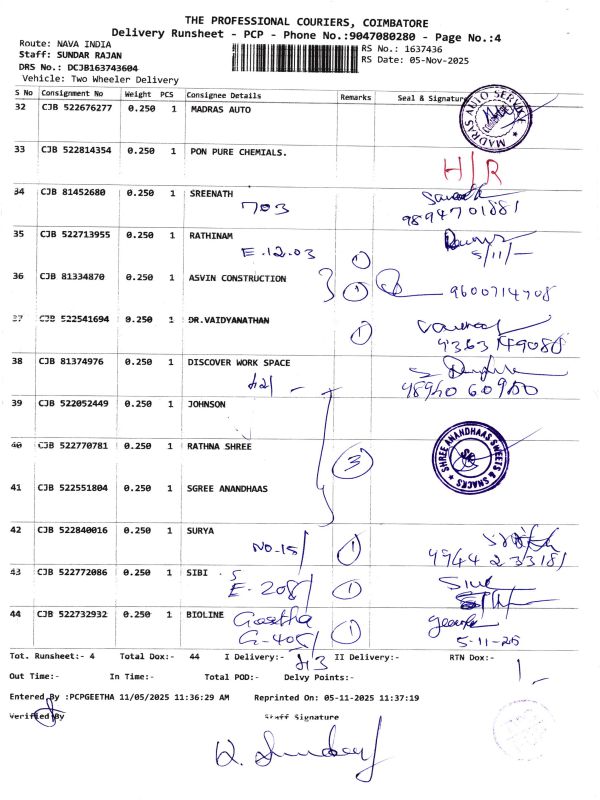 THE PROFESSIONAL COURIERS, COIMBATORE
Delivery Runsheet - PCP - Phone No.:9047080280 - Page No.:4
Route: NAVA INDIA
RS No.: 1637436
Staff: SUNDAR RAJAN
RS Date: 05-Nov-2025
DRS No.: DCJB163743604
Vehicle: Two Wheeler Delivery
S No Consignment No Weight PCS Consignee Details Remarks Seal & Signature
32 CJB 522676277 0.250 1 MADRAS AUTO
MADRAS AUTO SERVICE
33 CJB 522814354 0.250 1 PON PURE CHEMIALS.
H/R
34 CJB 81452680 0.250 1 SREENATH
703
9894701881
35 CJB 522713955 0.250 1 RATHINAM
E.12.03 1 5/11/-
36 CJB 81334870 0.250 1 ASVIN CONSTRUCTION
1 9600714708
37 CJB 522541694 0.250 1 DR.VAIDYANATHAN
1
9363149088
38 CJB 81374976 0.250 1 DISCOVER WORK SPACE
98940 60900
39 CJB 522052449 0.250 1 JOHNSON
40 CJB 522770781 0.250 1 RATHNA SHREE
3
SHREE ANANDHAAS SWEETS & SNACKS
41 CJB 522551804 0.250 1 SGREE ANANDHAAS
42 CJB 522840016 0.250 1 SURYA
NO-15/ 1 9944233181
43 CJB 522772086 0.250 1 SIBI . S
E-208/ 1
44 CJB 522732932 0.250 1 BIOLINE Geetha
G-405/ 1
5-11-25
Tot. Runsheet:- 4 Total Dox:- 44 I Delivery:- 43 II Delivery:- RTN Dox:- 1-
Out Time:- In Time:- Total POD:- Delvy Points:-
Entered By :PCPGEETHA 11/05/2025 11:36:29 AM Reprinted On: 05-11-2025 11:37:19
Verified By Staff Signature